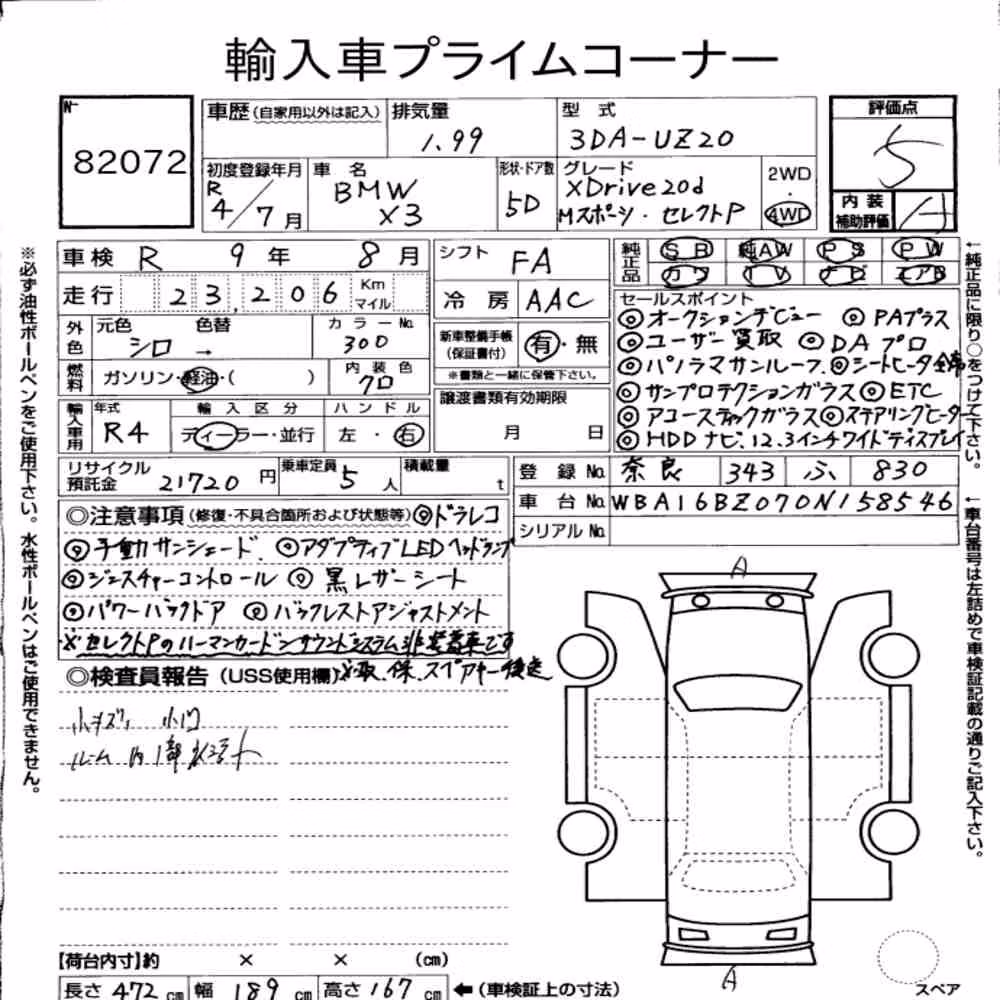 輸入車プライムコーナー
No.
82072
車歴(自家用以外は記入)
排気量
1.99
型式
3DA-UZ20
評価点
5
初度登録年月
R
4/7月
車名
BMW
X3
形状・ドア数
5D
グレード
XDrive20d
Mスポーツ・セレクトP
2WD
・
4WD
内装
補助評価
A
車検 R 9年 8月
シフト FA
純正品
SB 純AW PS PW
カワ TV ナビ エアB
走行 23,206 Km
マイル
冷房 AAC
セールスポイント
◎オークションデビュー ◎PAプラス
◎ユーザー買取 ◎DAプロ
◎パノラマサンルーフ. ◎シートヒータ全席
◎サンプロテクションガラス ◎ETC
◎アコースティックガラス◎ステアリングヒーター
◎HDDナビ、12.3インチワイドディスプレイ
外色
元色 色替
シロ →
カラーNo.
300
新車整備手帳
(保証書付)
有・無
※書類と一緒に保管下さい。
燃料
ガソリン・軽油・( )
内装色
クロ
譲渡書類有効期限
月 日
輸入車用
年式
R4
輸入区分
ディーラー・並行
ハンドル
左・右
リサイクル
預託金 21720円
乗車定員
5人
積載量
t
登録No. 奈良 343 ふ 830
車台No. WBA16BZ070N158546
シリアルNo.
◎注意事項(修復・不具合箇所および状態等)◎ドラレコ
◎手動サンシェード. ◎アダプティブLEDヘッドランプ
◎ジェスチャーコントロール ◎黒レザーシート
◎パワーバックドア ◎バックレストアジャストメント
※セレクトPのハーマンカードンサウンドシステム非装着車です
◎検査員報告(USS使用欄)※取.保.スペアキー後送
小キズ、小凹
ルーム内1部
A
A
【荷台内寸】約 × × (cm)
長さ 472cm 幅 189cm 高さ 167cm ←(車検証上の寸法)
スペア
※必ず油性ボールペンをご使用下さい。水性ボールペンはご使用できません。
←純正品に限り○をつけて下さい。
←車台番号は左詰めで車検証記載の通りご記入下さい。